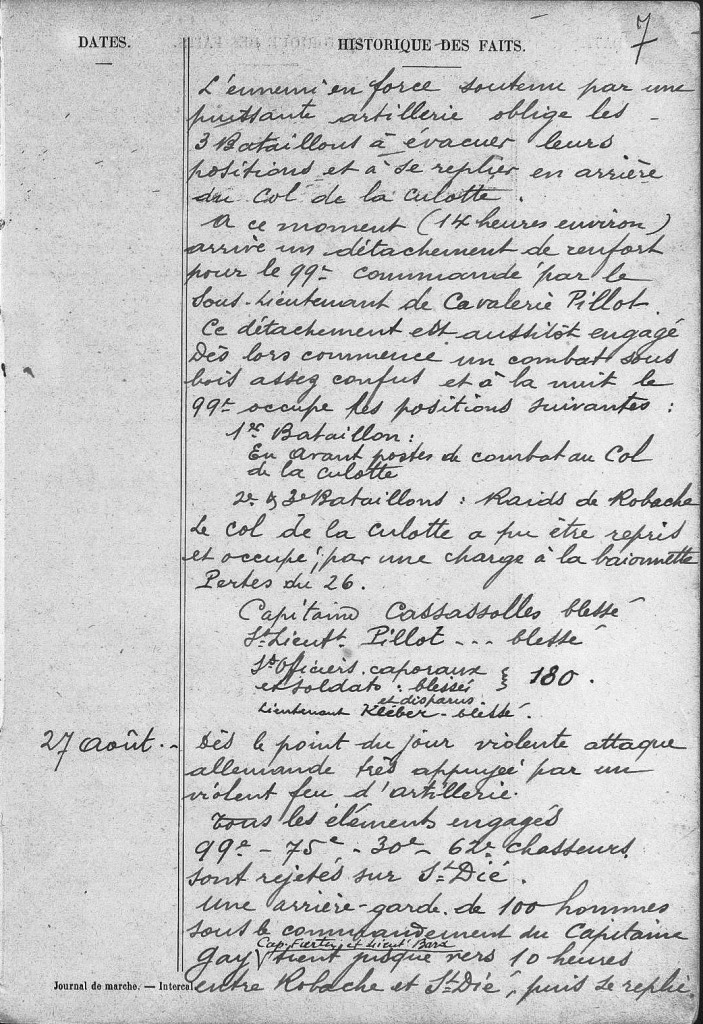 7
DATES. HISTORIQUE DES FAITS.
L'ennemi en force soutenu par une
puissante artillerie oblige les
3 Bataillons à évacuer leurs
positions et à se replier en arrière
du Col de la culotte.
A ce moment (14 heures environ)
arrive un détachement de renfort
pour le 99e commandé par le
Sous-Lieutenant de Cavalerie Pillot.
Ce détachement est aussitôt engagé
Dès lors commence un combat sous
bois assez confus et à la nuit le
99e occupe les positions suivantes :
1er Bataillon :
En avant postes de combat au Col
de la culotte
2e & 3e Bataillons : Raids de Robache
Le col de la culotte a pu être repris
et occupé, par une charge à la baionnette
Pertes du 26.
Capitaine Cassassolles blessé
St Lieutt Pillot ... blessé
St Officiers, caporaux
et soldats : blessés } 180.
et disparus
Lieutenant Kléber - blessé.
27 Août .- Dès le point du jour violente attaque
allemande très appuyée par un
violent feu d'artillerie.
Tous les éléments engagés
99e - 75e - 30e - 62e chasseurs
sont rejetés sur St Dié.
Une arrière-garde de 100 hommes
sous le commandement du Capitaine
Cap. et Lieutt
Gay tient jusque vers 10 heures
entre Robache et St Dié, puis se replie.
Journal de marche. — Intercal